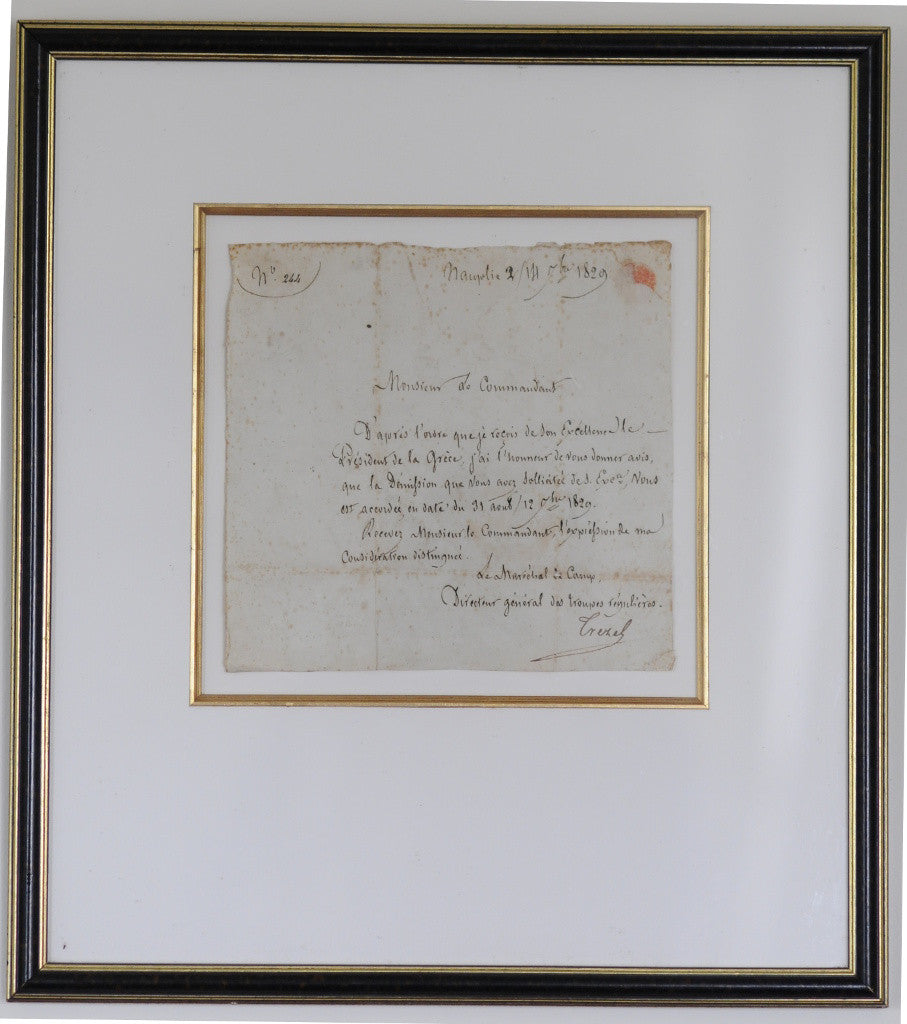 N.º 244
Nauplie 2/14 7bre 1829
Monsieur le Commandant
D'après l'ordre que je reçois de Son Excellence le
Président de la Grèce, j'ai l'honneur de vous donner avis,
que la Démission que vous avez sollicitée de S. Exce, Vous
est accordée en date du 31 août/12 7bre 1829.
Recevez Monsieur le Commandant, l'expression de ma
Considération distinguée.
Le Maréchal de Camp,
Directeur général des troupes régulières.
Trézel